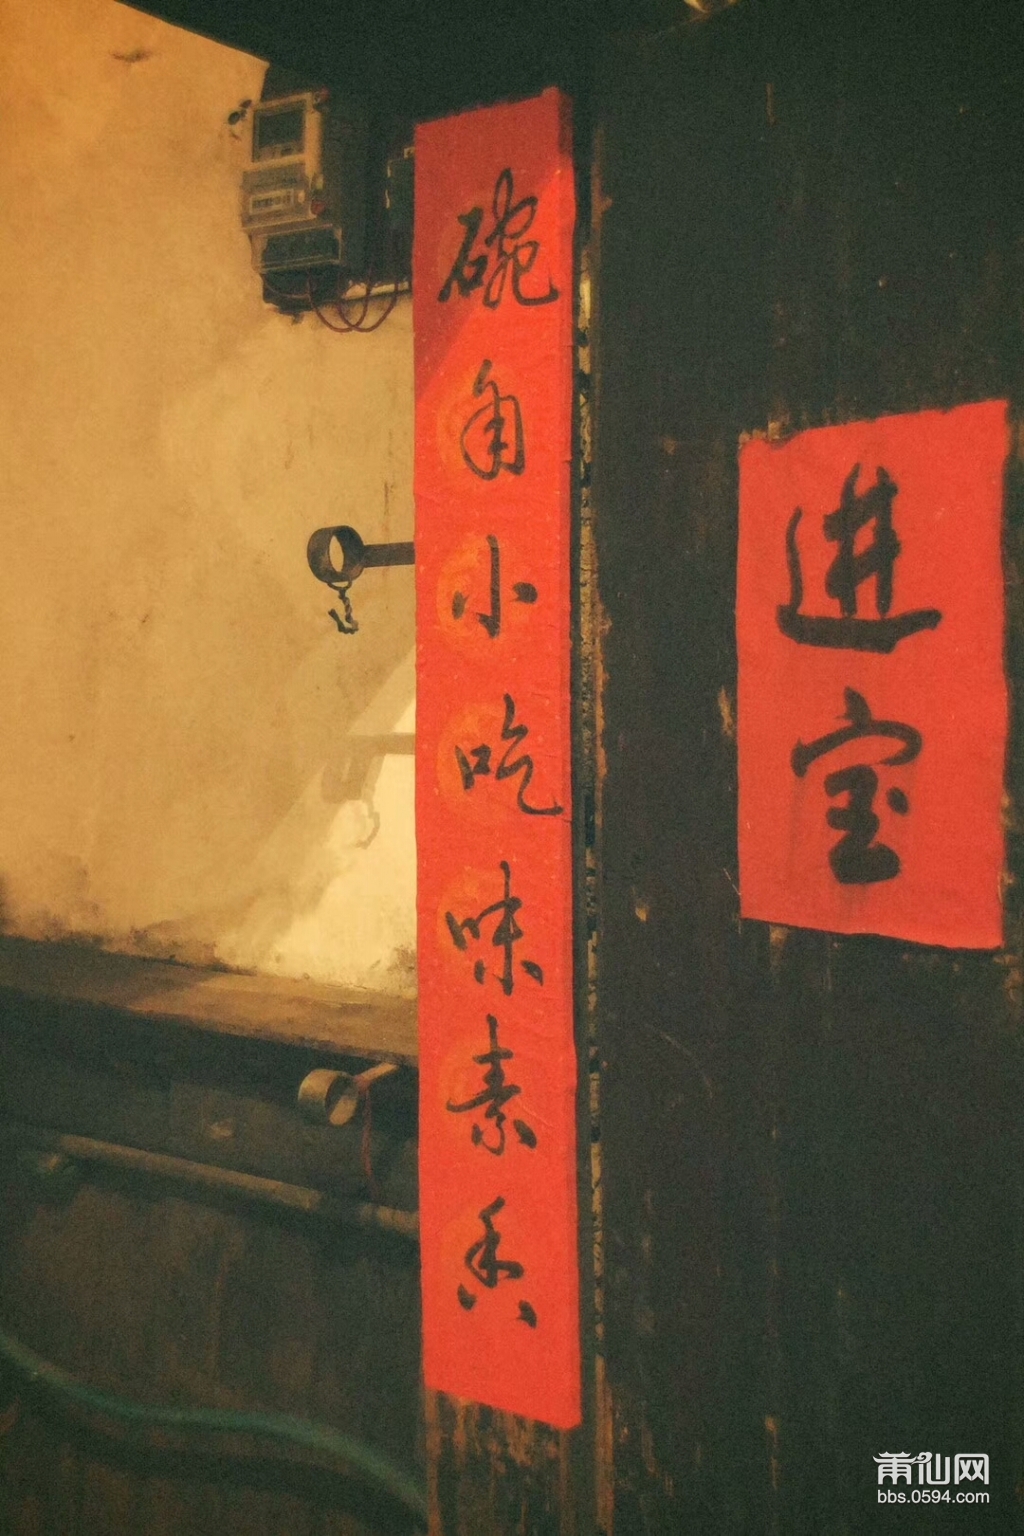 碗角小吃味素香
进宝
莆仙网
bbs.0594.com